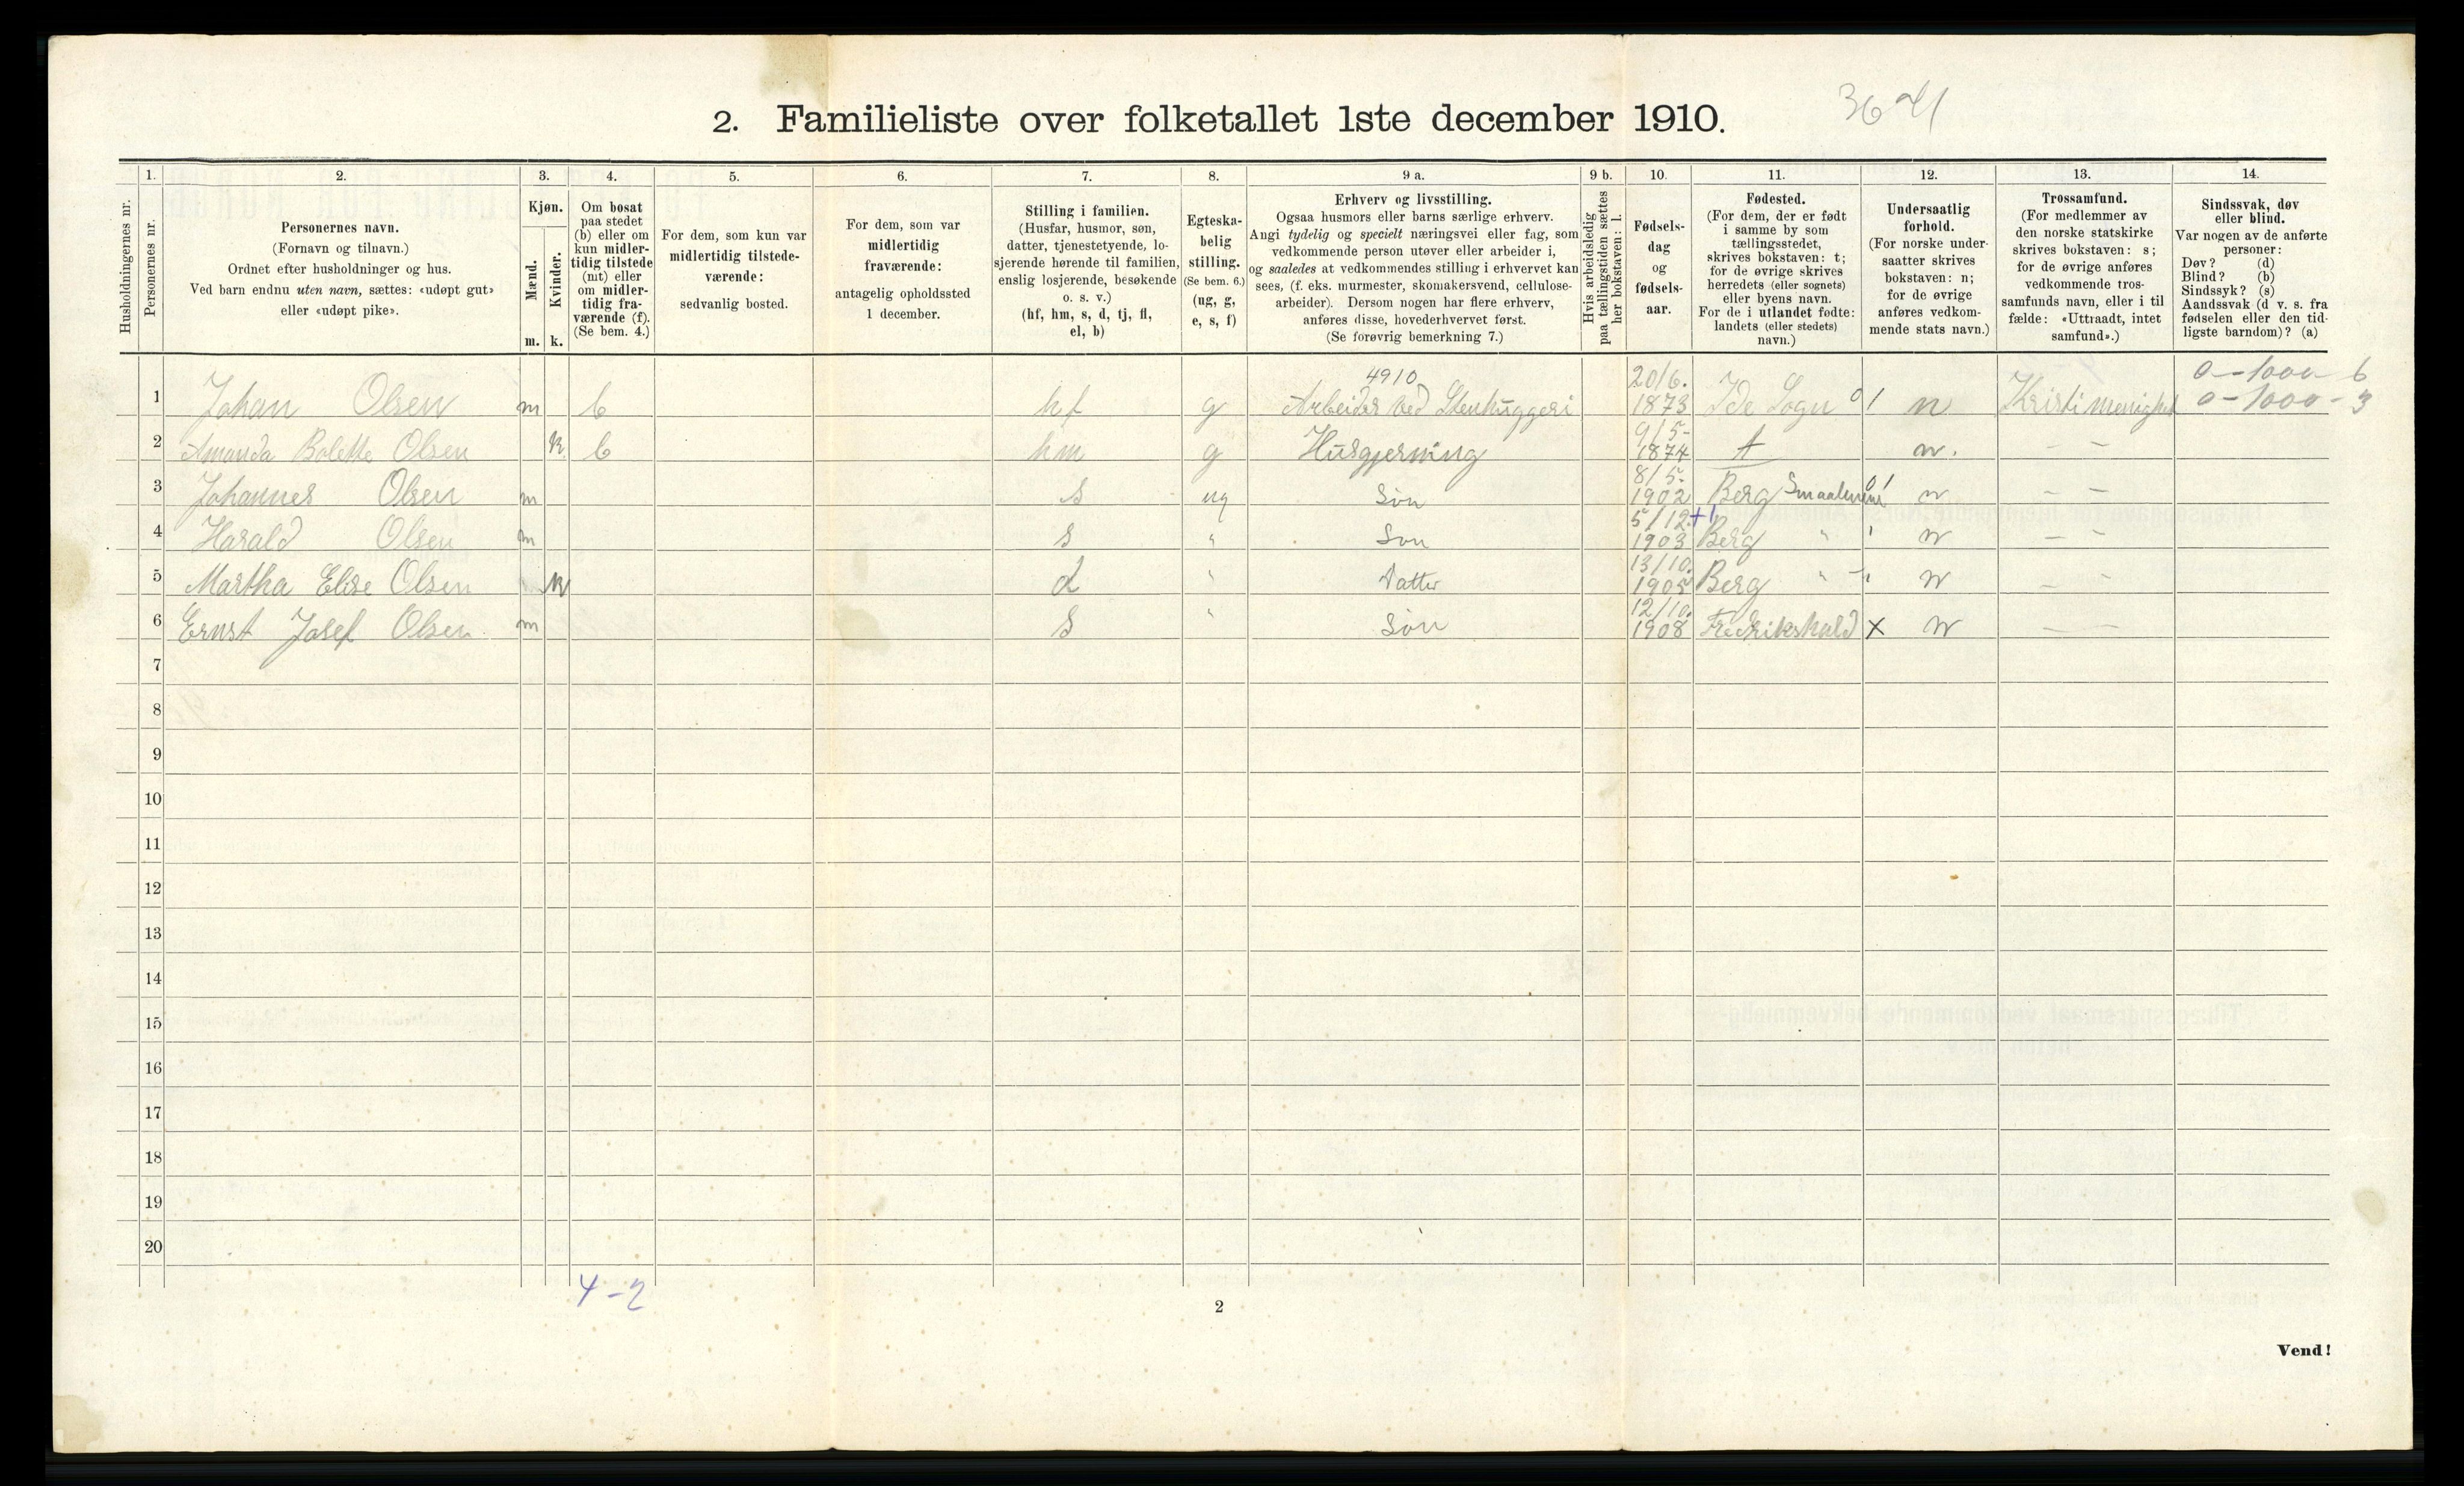 2. Familieliste over folketallet 1ste december 1910.
Husholdningernes nr.
1.
Personernes nr.
2.
Personernes navn.
(Fornavn og tilnavn.)
Ordnet efter husholdninger og hus.
Ved barn endnu uten navn, sættes: «udøpt gut»
eller «udøpt pike».
3.
Kjøn.
Mænd.
Kvinder.
m. k.
4.
Om bosat
paa stedet
(b) eller om
kun midler-
tidig tilstede
(mt) eller
om midler-
tidig fra-
værende (f).
(Se bem. 4.)
5.
For dem, som kun var
midlertidig tilstede-
værende:
sedvanlig bosted.
6.
For dem, som var
midlertidig
fraværende:
antagelig opholdssted
1 december.
7.
Stilling i familien.
(Husfar, husmor, søn,
datter, tjenestetyende, lo-
sjerende hørende til familien,
enslig losjerende, besøkende
o. s. v.)
(hf, hm, s, d, tj, fl,
el, b)
8.
Egteska-
belig
stilling.
(Se bem. 6.)
(ug, g,
e, s, f)
9 a.
Erhverv og livsstilling.
Ogsaa husmors eller barns særlige erhverv.
Angi tydelig og specielt næringsvei eller fag, som
vedkommende person utøver eller arbeider i,
og saaledes at vedkommendes stilling i erhvervet kan
sees, (f. eks. murmester, skomakersvend, cellulose-
arbeider). Dersom nogen har flere erhverv,
anføres disse, hovederhvervet først.
(Se forøvrig bemerkning 7.)
9 b.
Hvis arbeidsledig
paa tællingstiden sættes
her bokstaven: l.
10.
Fødsels-
dag
og
fødsels-
aar.
11.
Fødested.
(For dem, der er født
i samme by som
tællingsstedet,
skrives bokstaven: t;
for de øvrige skrives
herredets (eller sognets)
eller byens navn.
For de i utlandet fødte:
landets (eller stedets)
navn.)
12.
Undersaatlig
forhold.
(For norske under-
saatter skrives
bokstaven: n;
for de øvrige
anføres vedkom-
mende stats navn.)
13.
Trossamfund.
(For medlemmer av
den norske statskirke
skrives bokstaven: s;
for de øvrige anføres
vedkommende tros-
samfunds navn, eller i til
fælde: «Uttraadt, intet
samfund».)
14.
Sindssvak, døv
eller blind.
Var nogen av de anførte
personer:
Døv? (d)
Blind? (b)
Sindssyk? (s)
Aandssvak (d v. s. fra
fødselen eller den tid-
ligste barndom)? (a)
4910
1 Johan Olsen m b hf g Arbeider ved Stenhuggeri 20/6. 1873 Ide Sogn 01 n Kristi menighet 0-1000-3
2 Amanda Bolette Olsen k b hm g Husgjerning 9/5- 1874 t n. — —
3 Johannes Olsen m s ug Søn 8/5. 1902 Berg Smaalenene n — —
4 Harald Olsen m s " Søn 5/12. 1903 Berg " n — —
5 Martha Elise Olsen k d " Datter 13/10. 1905 Berg " n — —
6 Ernst Josef Olsen m s " Søn 12/10. 1908 Fredrikshald x n — —
7
8
9
10
11
12
13
14
15
16
17
18
19
20
4-2
2
Vend!